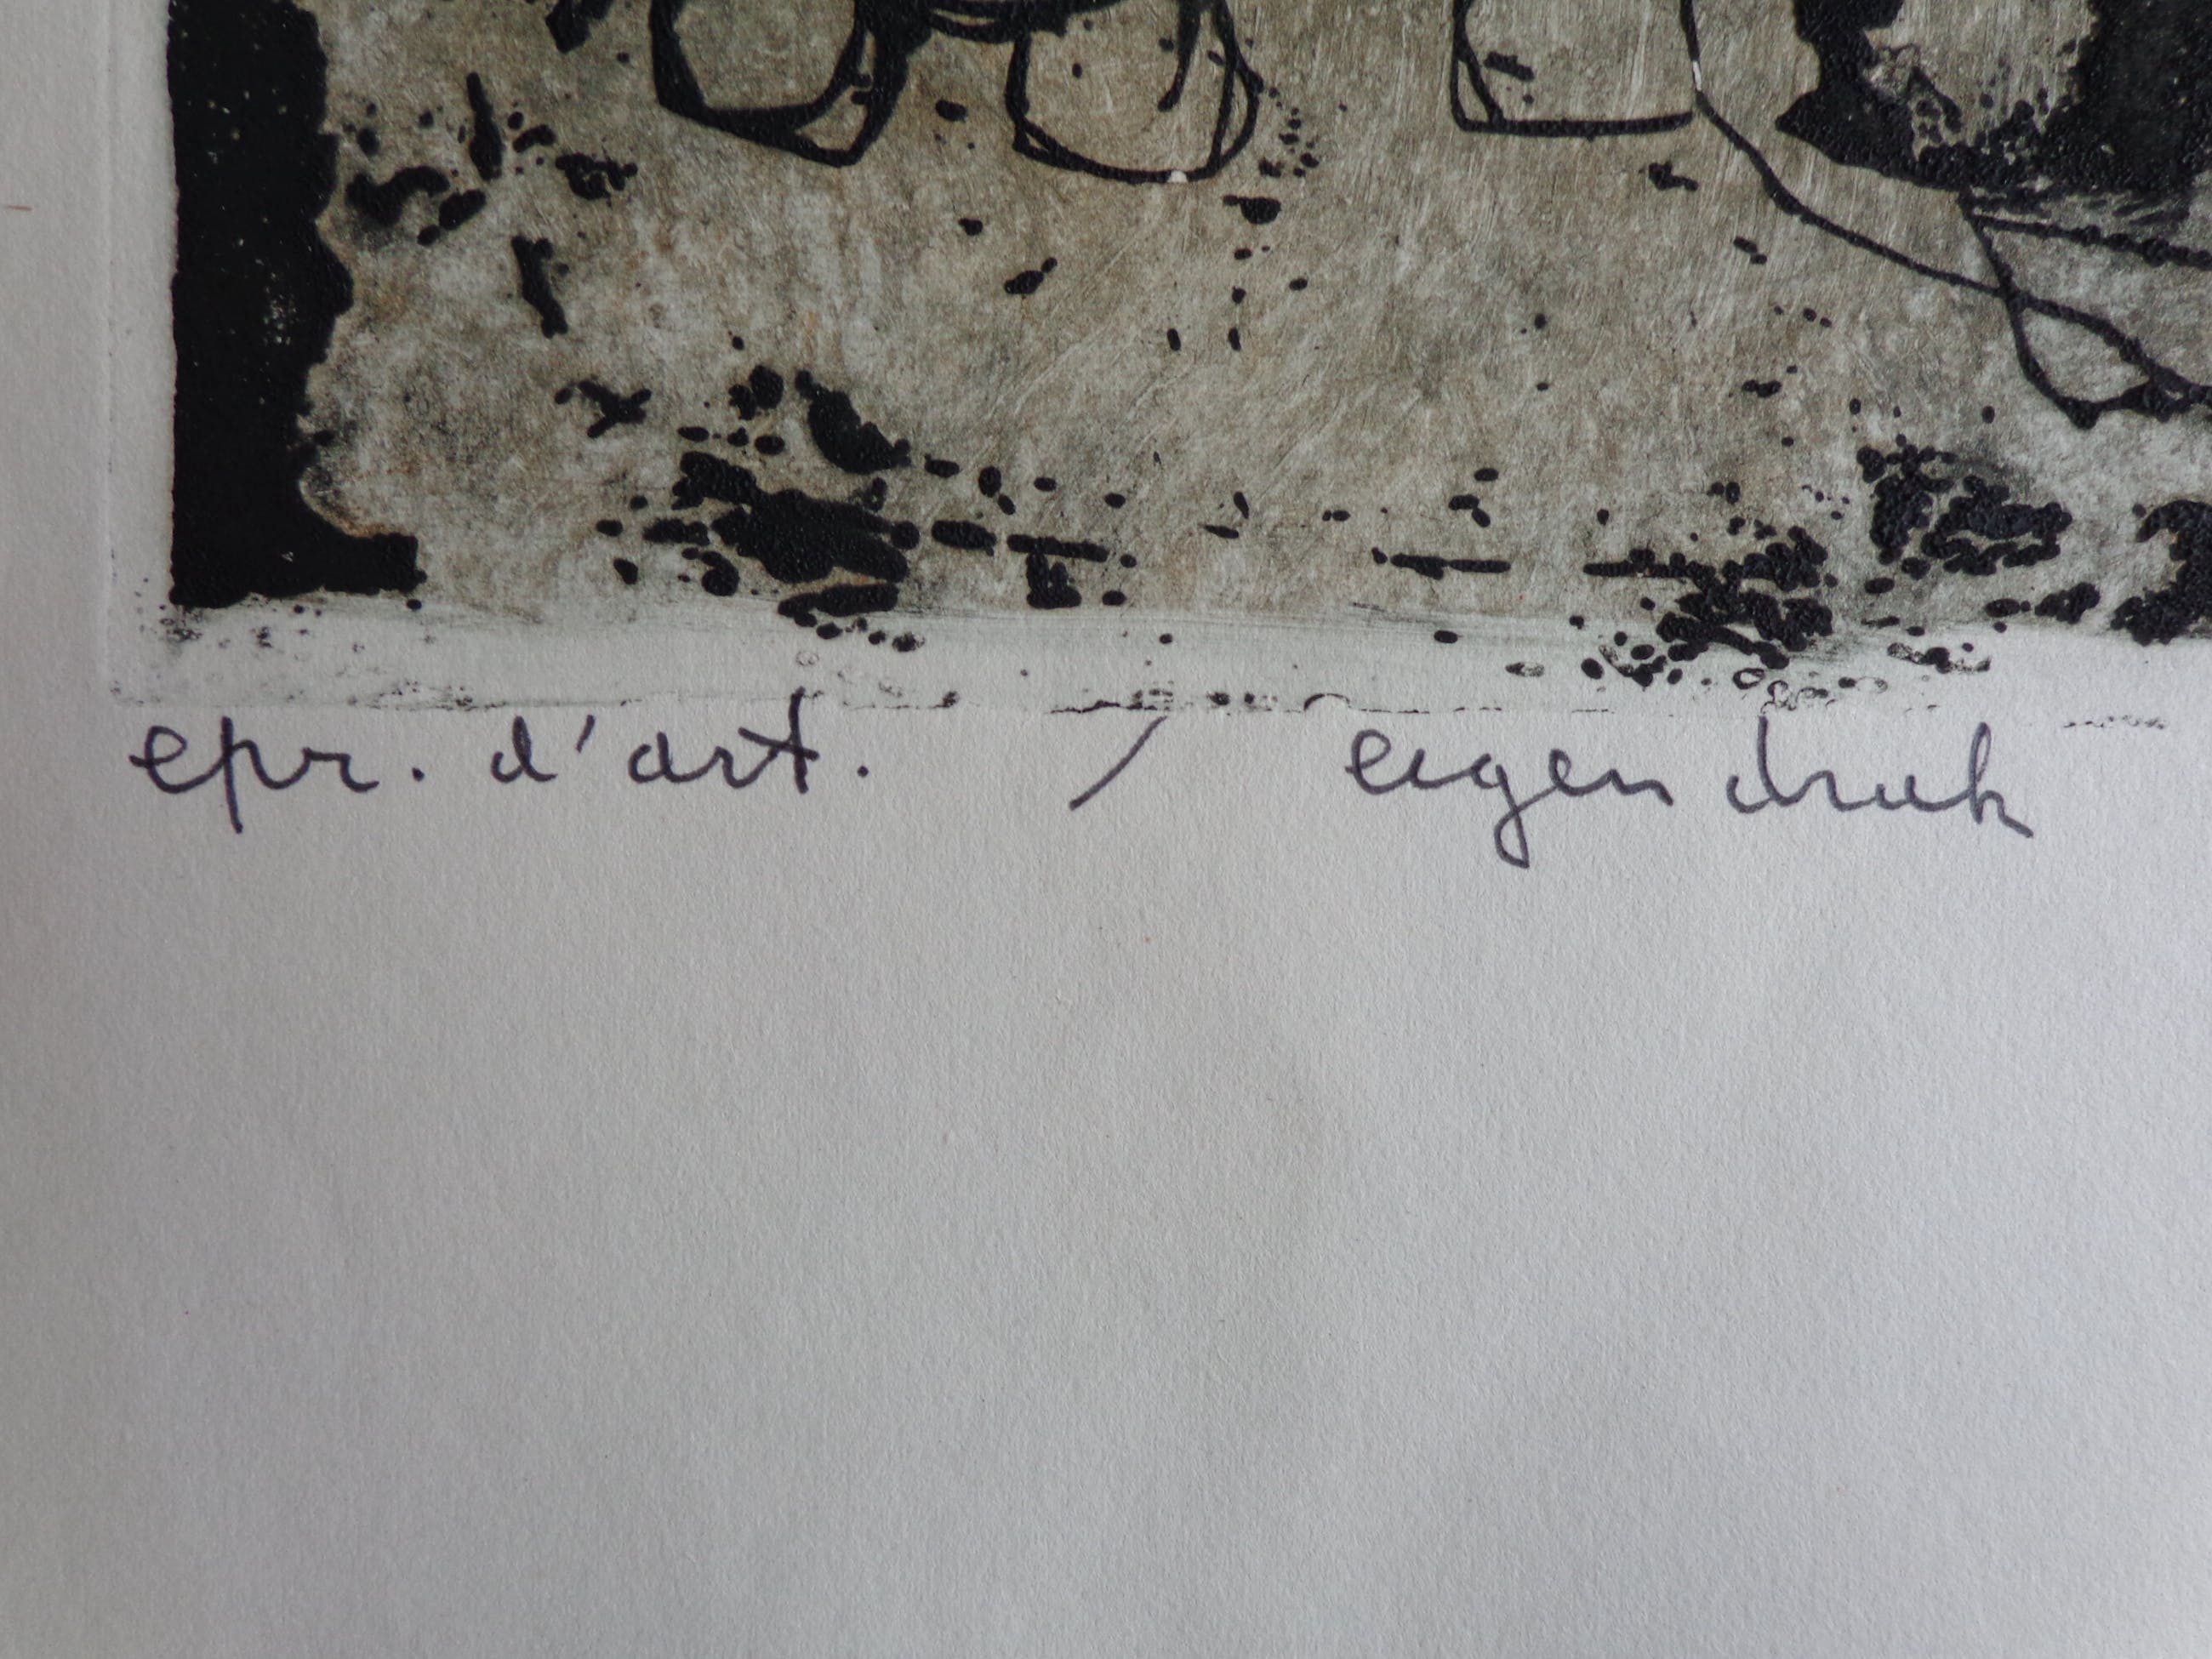 epr. d'art. / eigen druk